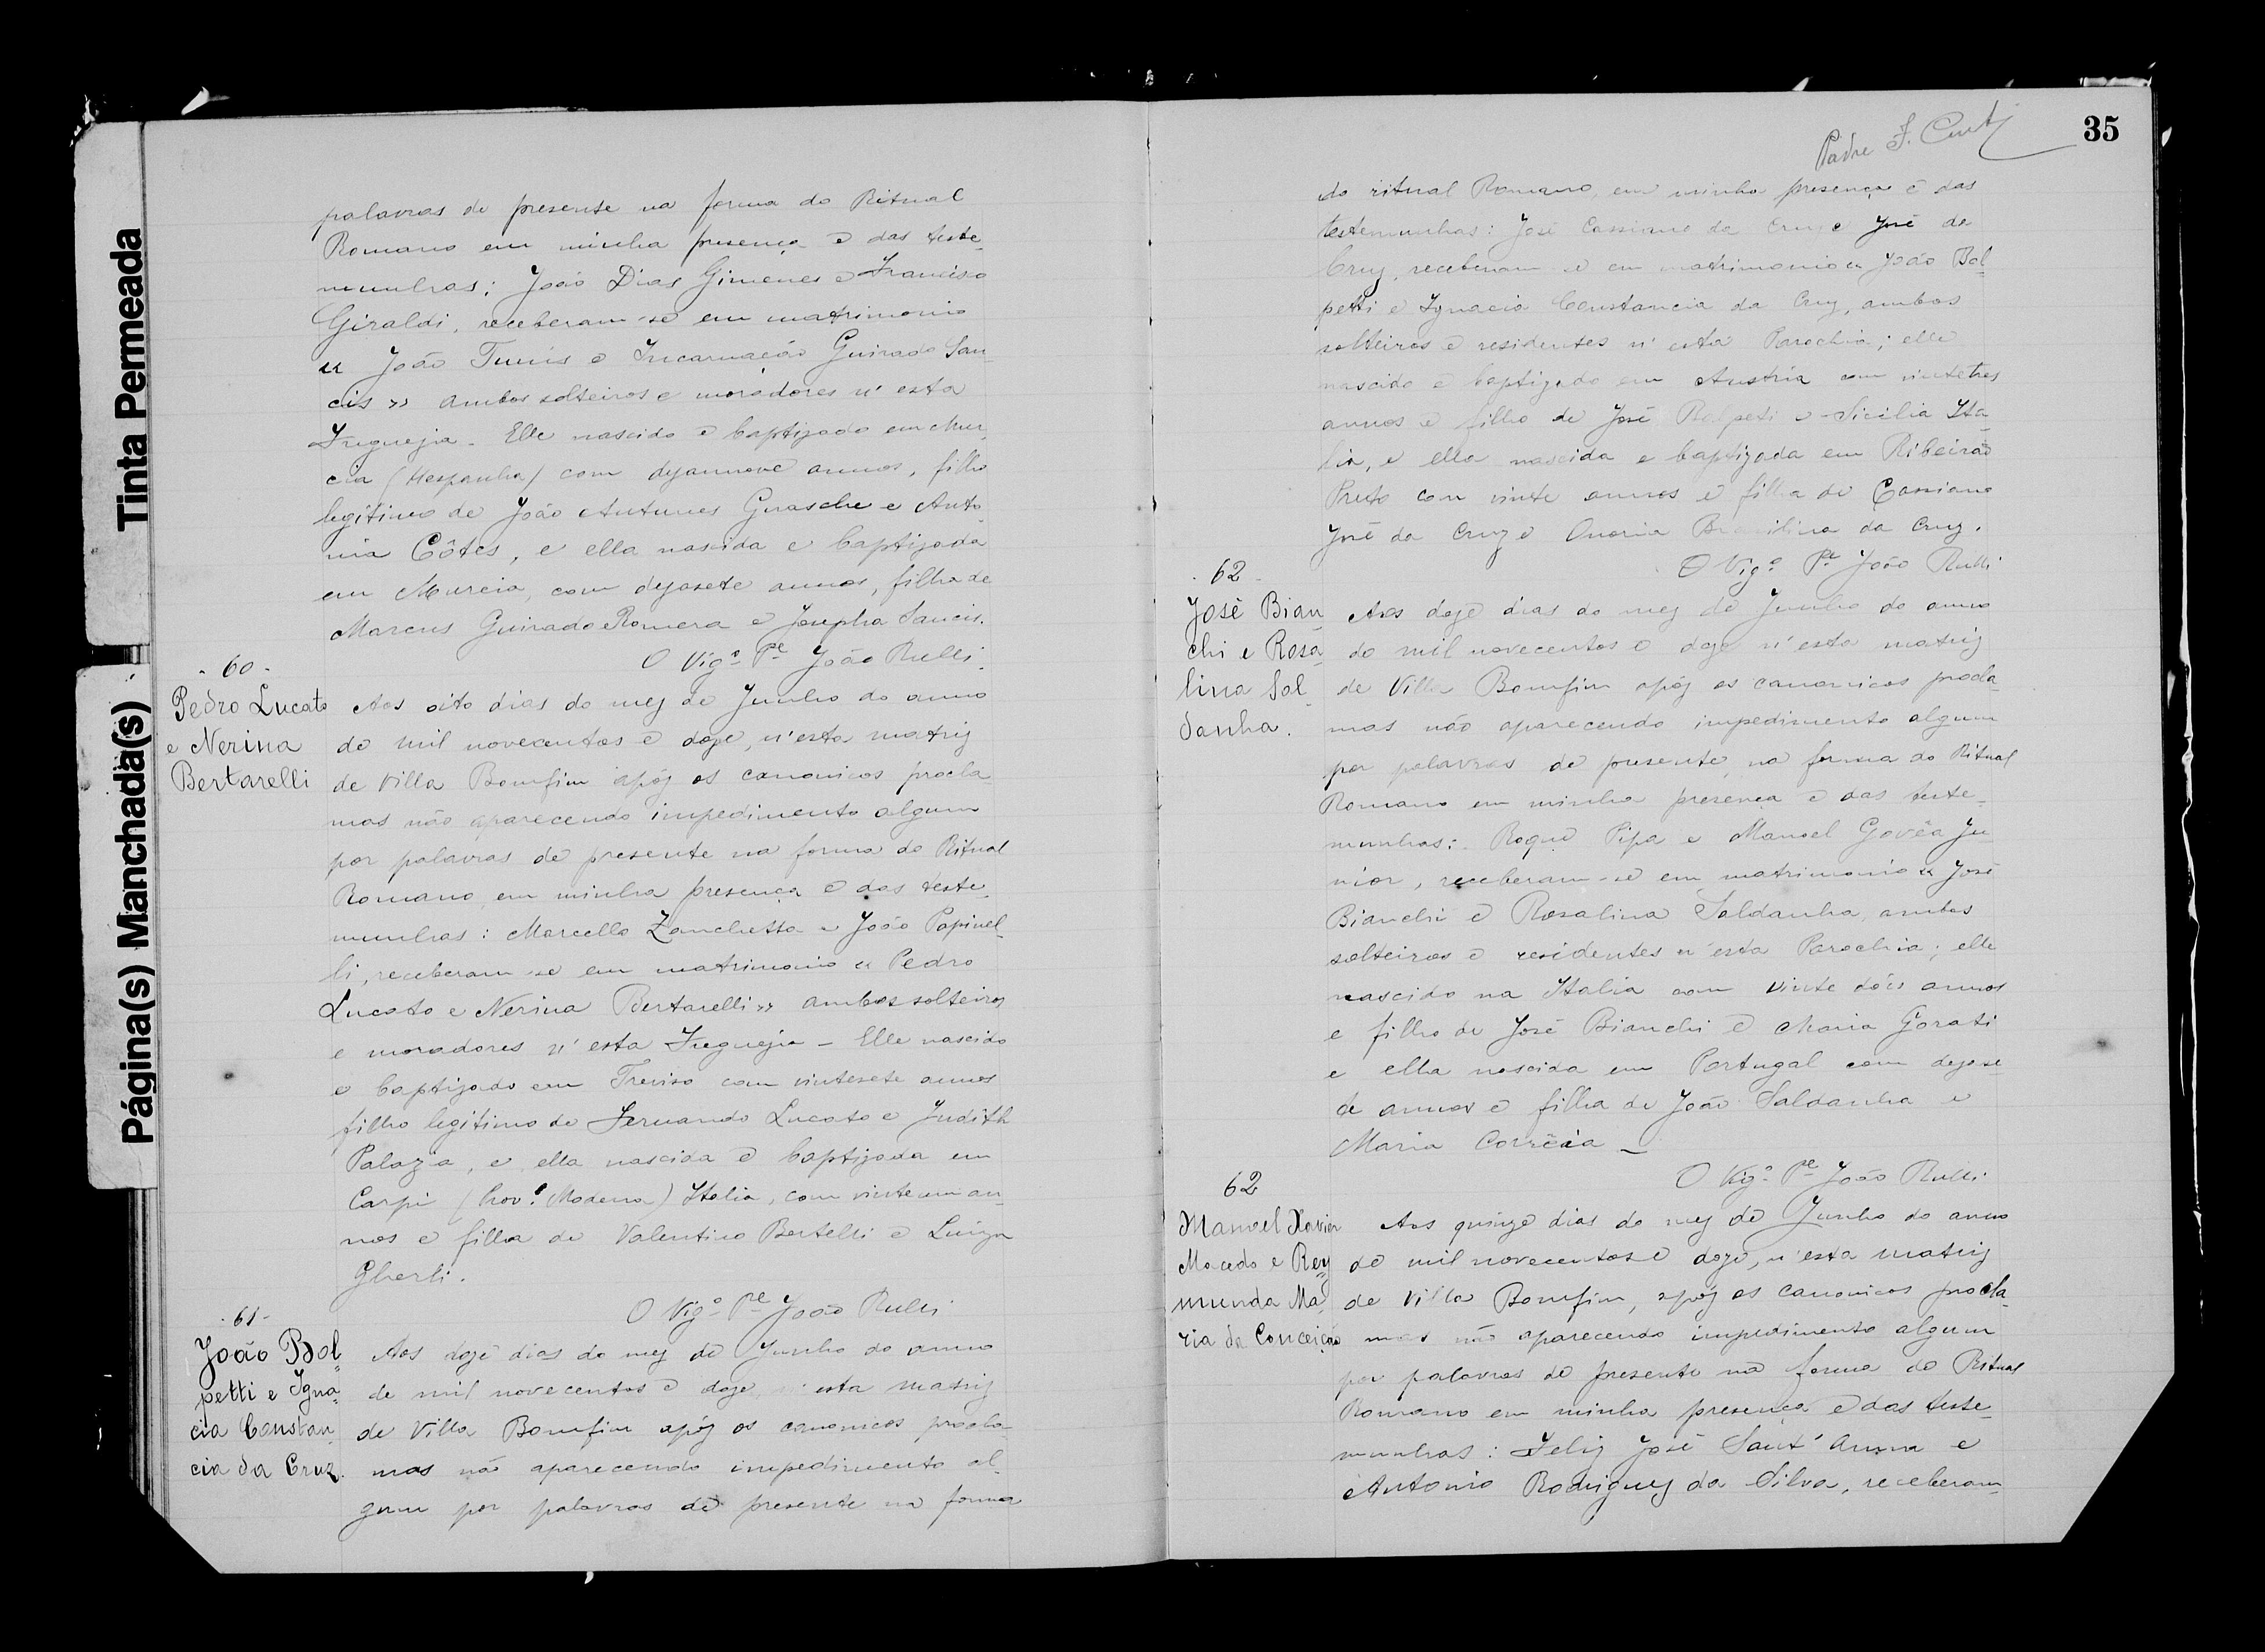 Tinta Permeada
Página(s) Manchada(s)
palavras de presente na forma do Ritual
Romano em minha presença e das teste-
munhas: João Dias Gimenes e Francisco
Giraldi, receberam-se em matrimonio
« João Tunis e Incarnação Guirado San-
cis » ambos solteiros e moradores n'esta
Freguezia. Elle nascido e baptizado em Mur-
cia (Hespanha) com dezannove annos, filho
legitimo de João Antunes Guasche e Anto-
nia Côtes, e ella nascida e baptizada
em Murcia, com dezasete annos, filha de
Marcus Guirado Romera e Josepha Sancis.
O Vigº Pe João Rulli.
- 60 -
Pedro Lucato
e Nerina
Bertarelli
Aos oito dias do mez de Junho do anno
de mil novecentos e doze, n'esta matriz
de Villa Bomfim apóz os canonicos procla-
mas não aparecendo impedimento algum
por palavras de presente na forma do Ritual
Romano, em minha presença e das teste-
munhas: Marcello Zanchetta e João Papinel-
li, receberam-se em matrimonio « Pedro
Lucato e Nerina Bertarelli » ambos solteiros
e moradores n'esta Freguezia - Elle nascido
e baptizado em Treviso com vintesete annos
filho legitimo de Fernando Lucato e Judith
Palazia, e ella nascida e baptizada em
Carpi (Prov.ª Modena) Italia, com vinte um an-
nos e filha de Valentino Bertelli e Luiza
Gherli.
O Vigº Pe João Rulli
- 61 -
João Bol-
petti e Igna-
cia Constan-
cia da Cruz.
Aos doze dias do mez de Junho do anno
de mil novecentos e doze, n'esta matriz
de Villa Bomfim apóz os canonicos procla-
mas não aparecendo impedimento al-
gum por palavras de presente na forma
Padre F.
35
do ritual Romano, em minha presença e das
testemunhas: José Cassiano da Cruz e José da
Cruz, receberam-se em matrimonio « João Bol-
petti e Ignacia Constancia da Cruz, ambos
solteiros e residentes n'esta Parochia; elle
nascido e baptizado em Austria com vintetres
annos e filho de José Bolpeti e Sicilia Ita-
lia, e ella nascida e baptizada em Ribeirão
Preto com vinte annos e filha de Cassiano
José da Cruz e Maria Brasilina da Cruz.
O Vigº Pe João Rulli
- 62 -
José Bian-
chi e Rosa-
lina Sal-
danha.
Aos doze dias do mez de Junho do anno
de mil novecentos e doze n'esta matriz
de Villa Bomfim apóz os canonicos procla-
mas não aparecendo impedimento algum
por palavras de presente, na forma do Ritual
Romano em minha presença e das teste-
munhas: Roque Pipa e Manoel Govêa Ju-
nior, receberam-se em matrimonio « José
Bianchi e Rosalina Saldanha, ambos
solteiros e residentes n'esta Parochia; elle
nascido na Italia com vinte dóis annos
e filho de José Bianchi e Maria Gorati
e ella nascida em Portugal com dezese-
te annos e filha de João Saldanha e
Maria Corrêia -
O Vigº Pe João Rulli
62
Manoel Xavier
Macedo e Rey-
munda Ma-
ria da Conceição
Aos quinze dias do mez de Junho do anno
de mil novecentos e doze, n'esta matriz
de Villa Bomfim, apóz os canonicos procla-
mas não aparecendo impedimento algum
por palavras de presente na forma do Ritual
Romano em minha presença e das teste-
munhas: Feliz José Sant'Anna e
Antonio Rodrigues da Silva, receberam-